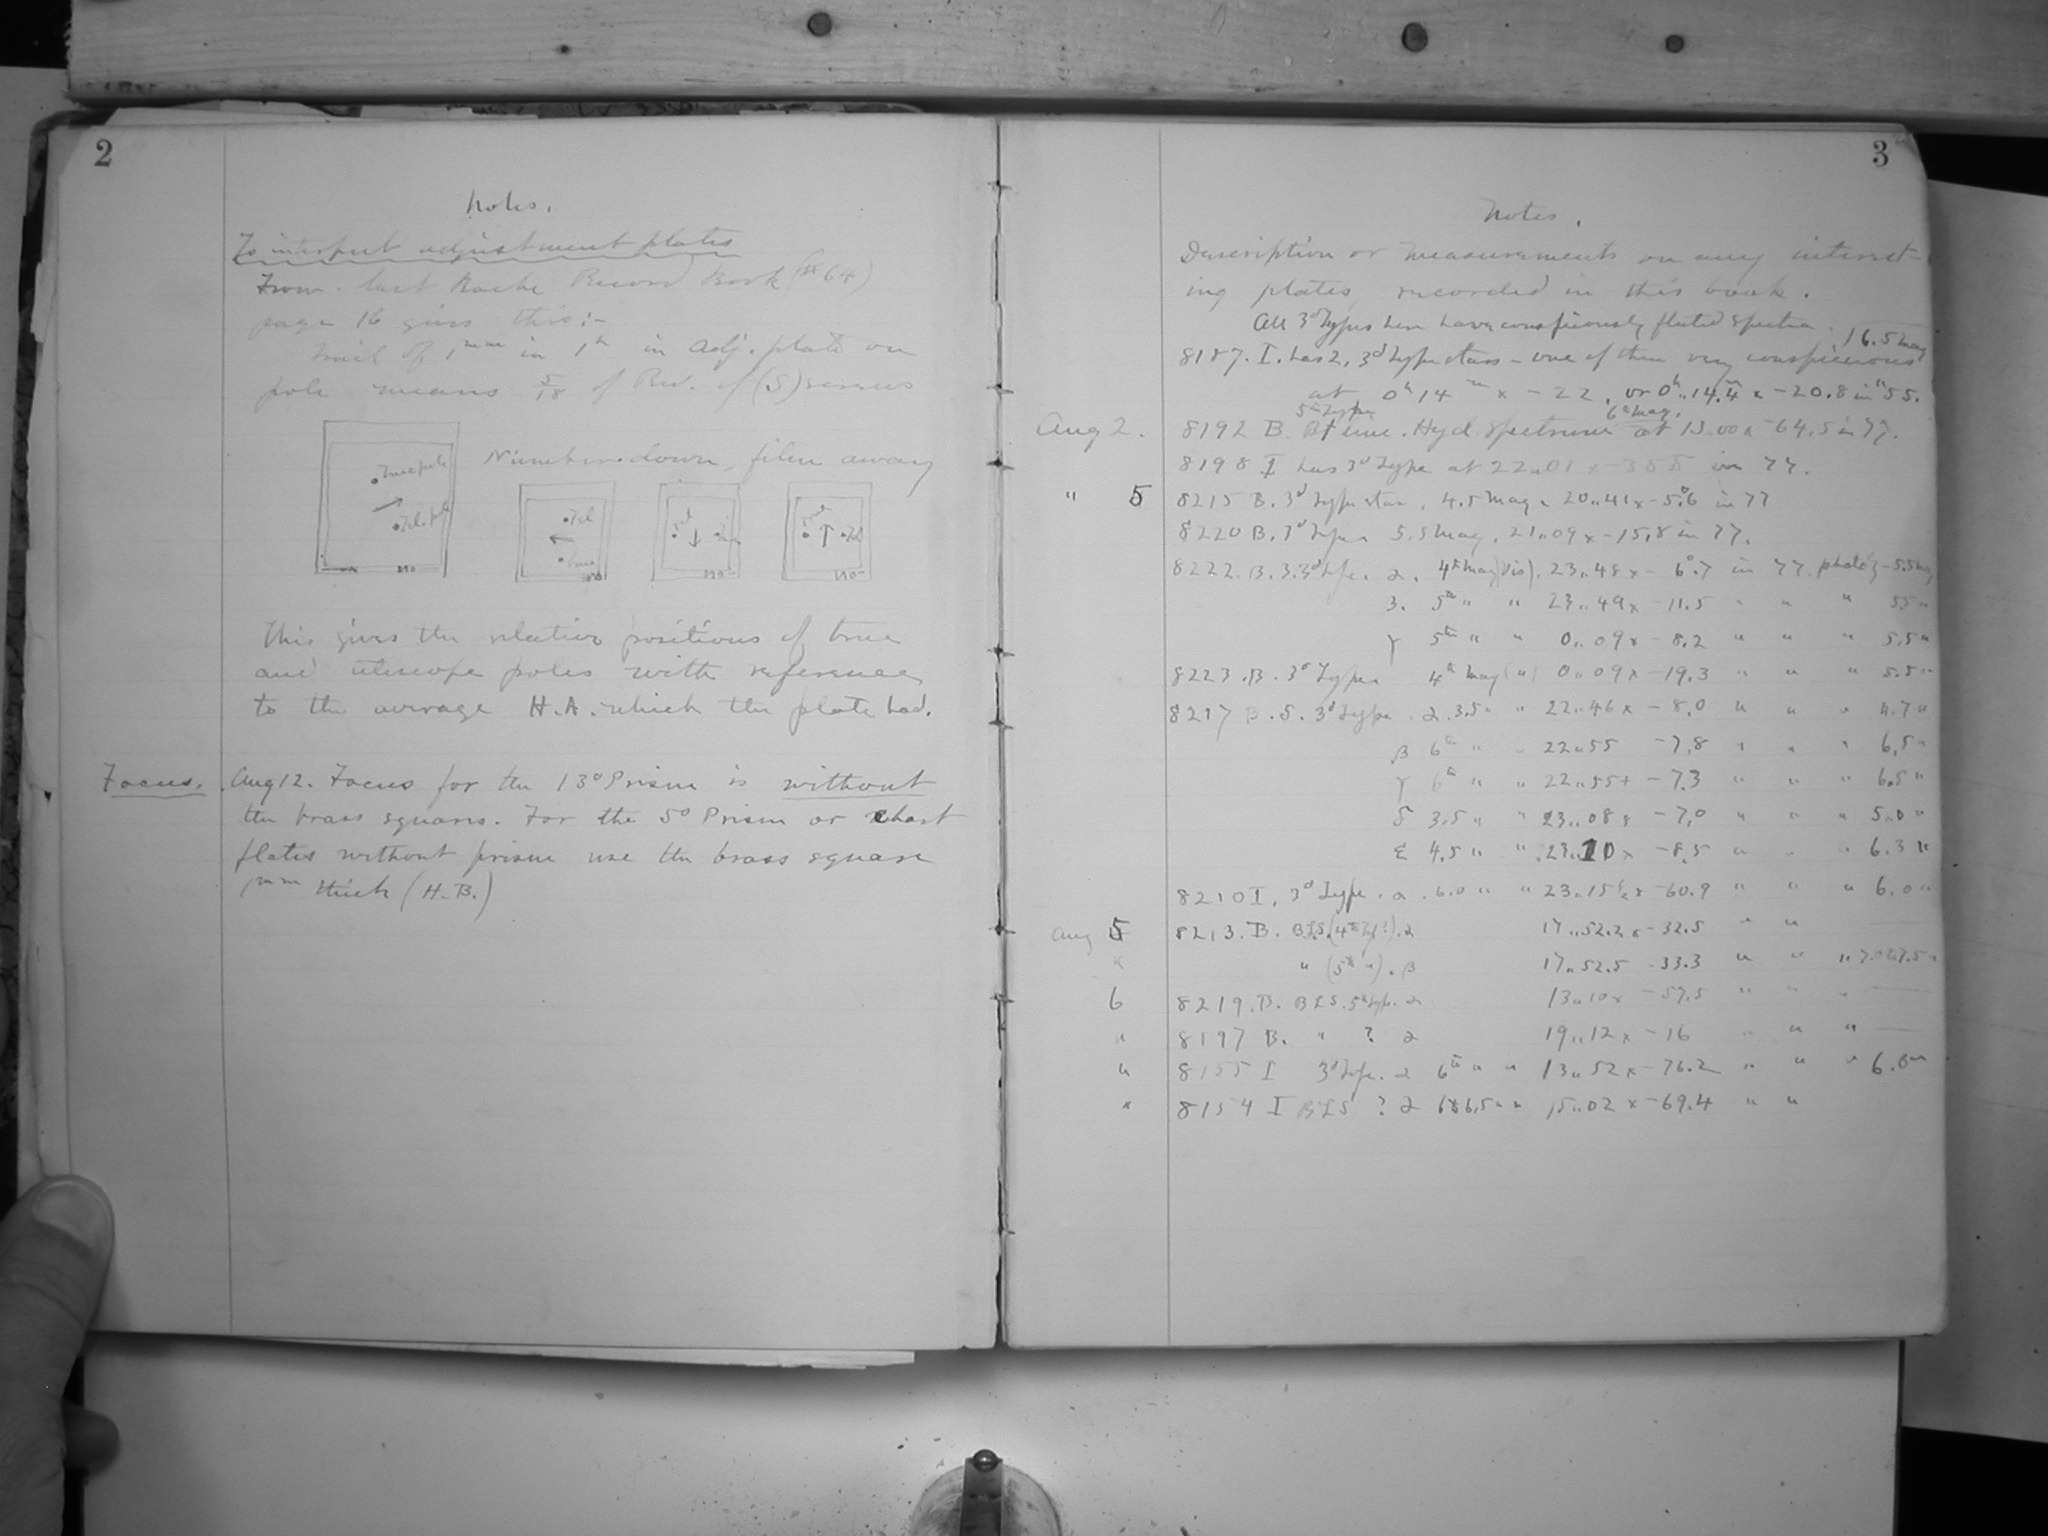 2
Notes.
To interpret adjustment plates
From last Bache Record Book (#64)
page 16 gives this:-
Trail of 1mm in 1h in adj. plate on
pole means 5/18 of Rev. of (S) screws
Number down, film away
True pole
Tel. pole
No
Tel
True
No
No
Tel
No
This gives the relative positions of true
and telescope poles with reference
to the average H.A. which the plate had.
Focus. Aug 12. Focus for the 13° Prism is without
the brass squares. For the 5° Prism or chart
plates without prism use the brass square
1mm thick (H.B.)
3
Notes.
Description or measurements on any interest-
ing plates recorded in this book.
All 3d Types here have conspicuously fluted spectra.
6.5 mag
8187. I. has 2, 3d type stars - one of them very conspicuous
at 0h 14m x - 22, or 0h,, 14.4m x -20.8 in "55.
5th Type 6th mag.
Aug 2. 8192 B. Hyd. Spectrum at 13,,00 x -64.5 in 77.
8198 I has 3d Type at 22,,01 x -35 in 77.
" 5 8215 B. 3d Type star, 4.5 mag. 20,,41 x -5.°6 in 77
8220 B. 3d Type 5.5 mag. 21,,09 x -15.8 in 77.
8222. B. 3. 3d Type. α. 4th mag (vis). 23,,48 x - 6°.7 in 77. photo'g - 5.5 mag
β. 5th " " 23,,49 x -11.5 " " " 5.5 "
γ 5th " " 0,,09 x -8.2 " " " 5.5 "
8223. B. 3d Type 4th mag (") 0,,09 x -19.3 " " " 5.5 "
8217 B. 5. 3d Type. α. 3.5 " " 22,,46 x - 8.0 " " " 4.7 "
β 6th " " 22,,55 -7.8 " " " 6.5 "
γ 6th " " 22,,55+ -7.3 " " " 6.5 "
δ 3.5 " " 23,,08 x -7.0 " " " 5.0 "
ε 4.5 " " 23,,10 x -8.5 " " " 6.3 "
8210 I. 3d Type. α. 6.0 " " 23,,15 x -60.9 " " " 6.0 "
Aug 5 8213. B. BLS. (4th Ty?). α 17,,52.2 x -32.5 " "
" " (5th "). β 17,,52.5 -33.3 " " " 7.0 7.5 "
6 8219. B. BLS. 5th type. α 13,,10 x -57.5 " " "
" 8197 B. " ? α 19,,12 x -16 " " "
" 8155 I 3d Type. α 6th " " 13,,52 x -76.2 " " " 6.0 "
" 8154 I BLS ? α 6.5 " " 15,,02 x -69.4 " "